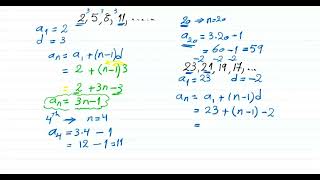 2, 5, 8, 11, ......
3 3 3
a₁ = 2
d = 3
aₙ = a₁ + (n-1)d
= 2 + (n-1)3
= 2 + 3n - 3
aₙ = 3n - 1
4ᵗʰ → n=4
a₄ = 3·4 - 1
= 12 - 1 = 11
20 → n=20
a₂₀ = 3·20 - 1
= 60 - 1 = 59
-2 -2 -2
23, 21, 19, 17, ...
a₁ = 23 d = -2
aₙ = a₁ + (n-1)d
= 23 + (n-1) - 2
=